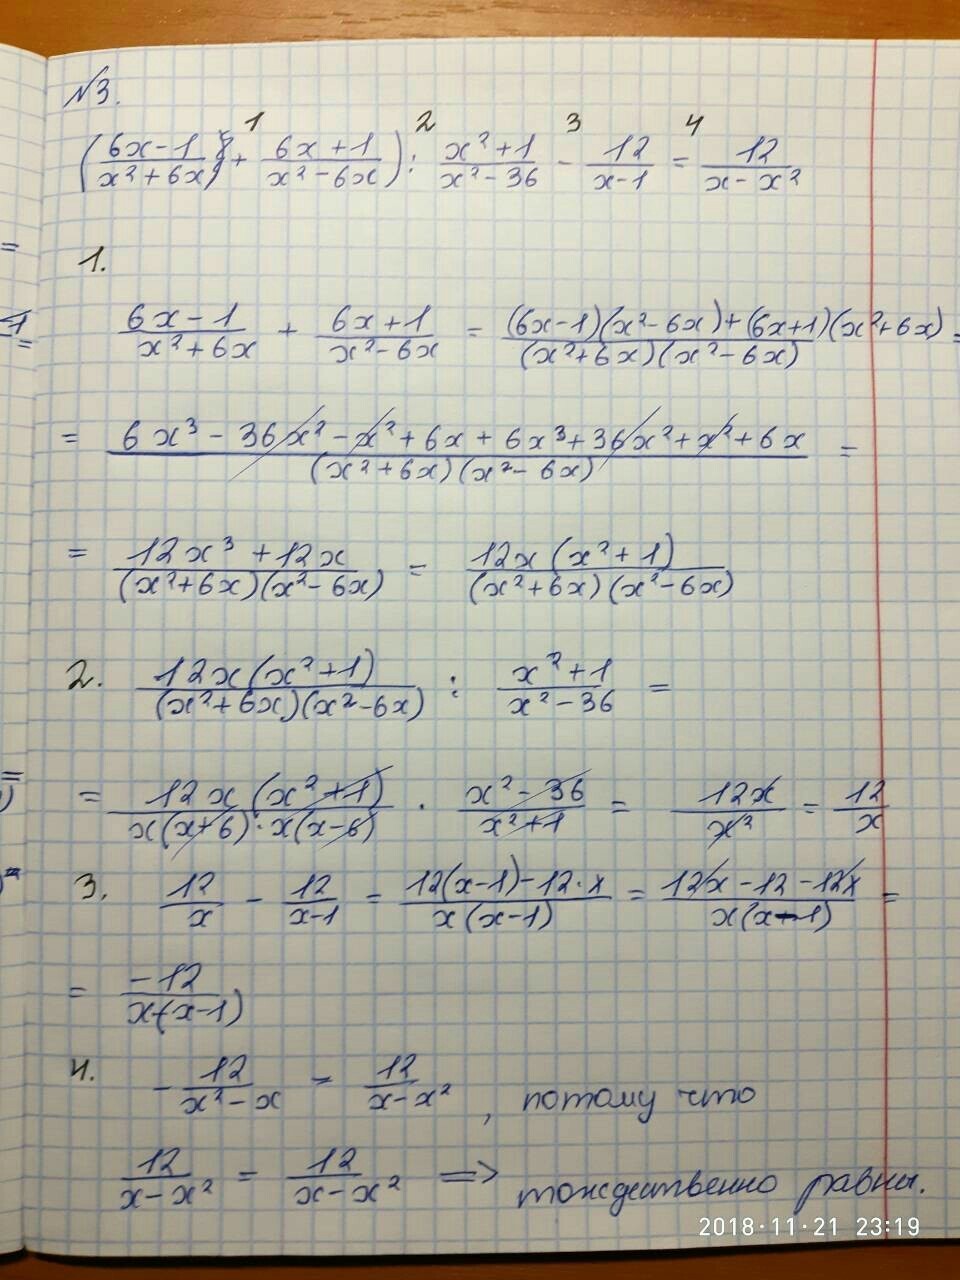 №3.
1 2 3 4
((6x-1)/(x²+6x) + (6x+1)/(x²-6x)) : (x²+1)/(x²-36) - 12/(x-1) = 12/(x-x²)
1.
(6x-1)/(x²+6x) + (6x+1)/(x²-6x) = ((6x-1)(x²-6x)+(6x+1)(x²+6x))/((x²+6x)(x²-6x)) =
= (6x³-36x²-x²+6x+6x³+36x²+x²+6x)/((x²+6x)(x²-6x)) =
= (12x³+12x)/((x²+6x)(x²-6x)) = (12x(x²+1))/((x²+6x)(x²-6x))
2. (12x(x²+1))/((x²+6x)(x²-6x)) : (x²+1)/(x²-36) =
= (12x(x²+1))/(x(x+6)·x(x-6)) · (x²-36)/(x²+1) = 12x/x² = 12/x
3. 12/x - 12/(x-1) = (12(x-1)-12·x)/(x(x-1)) = (12x-12-12x)/(x(x-1)) =
= -12/(x(x-1))
4. -12/(x²-x) = 12/(x-x²), потому что
12/(x-x²) = 12/(x-x²) ⇒ тождественно равны.
2018·11·21 23:19